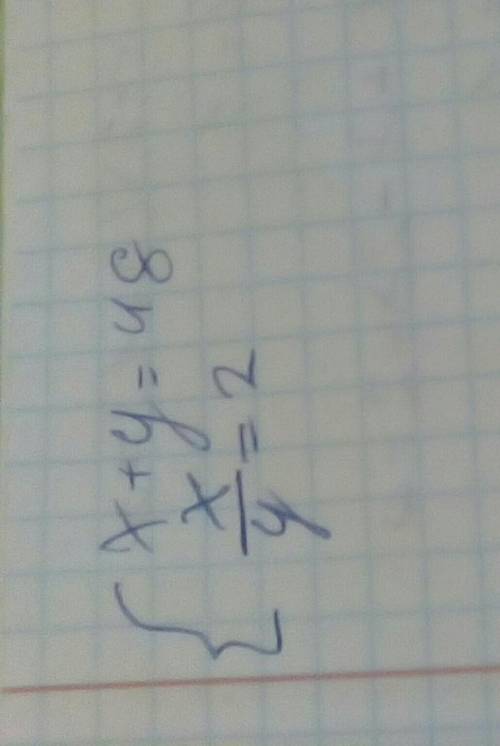 x + y = 48
x/y = 2